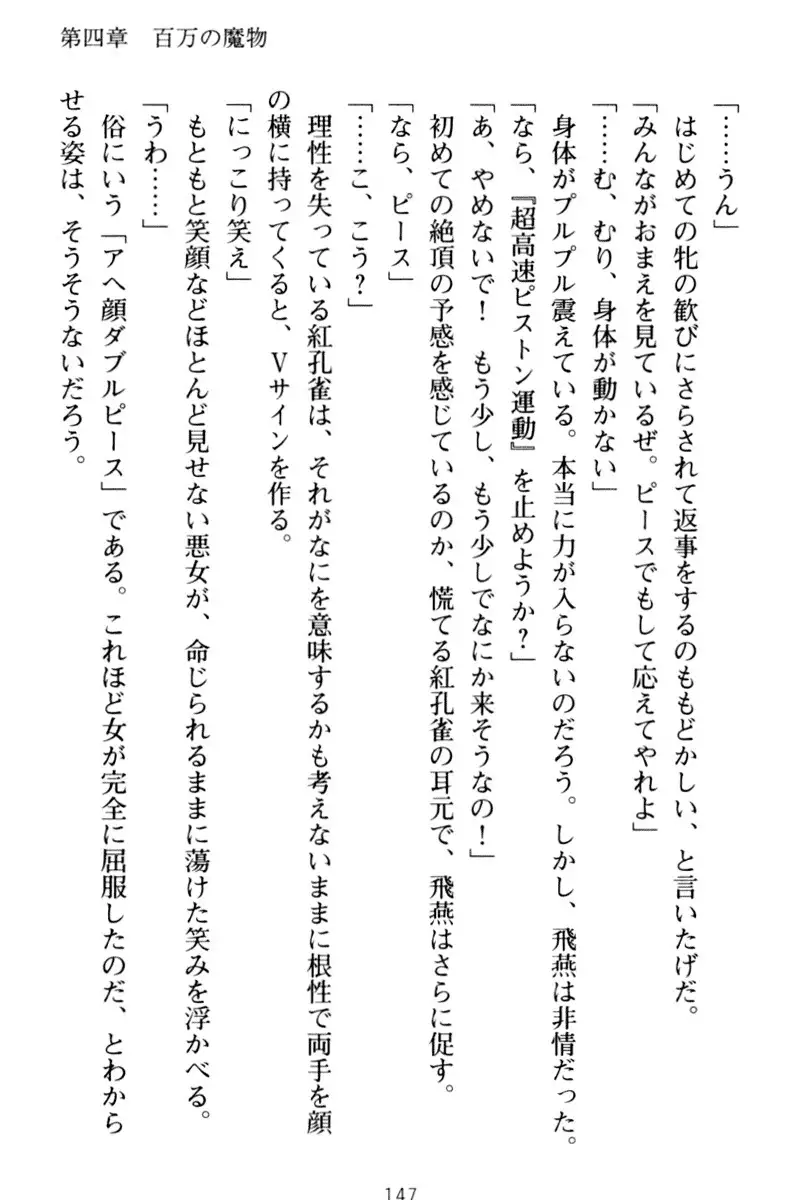 第四章　百万の魔物
「……うん」
　はじめての牝の歓びにさらされて返事をするのももどかしい、と言いたげだ。
「みんながおまえを見ているぜ。ピースでもして応えてやれよ」
「……む、むり、身体が動かない」
　身体がプルプル震えている。本当に力が入らないのだろう。しかし、飛燕は非情だった。
「なら、『超高速ピストン運動』を止めようか？」
「あ、やめないで！　もう少し、もう少しでなにか来そうなの！」
　初めての絶頂の予感を感じているのか、慌てる紅孔雀の耳元で、飛燕はさらに促す。
「なら、ピース」
「……こ、こう？」
　理性を失っている紅孔雀は、それがなにを意味するかも考えないままに根性で両手を顔
の横に持ってくると、Ｖサインを作る。
「にっこり笑え」
　もともと笑顔などほとんど見せない悪女が、命じられるままに蕩けた笑みを浮かべる。
「うわ……」
　俗にいう「アヘ顔ダブルピース」である。これほど女が完全に屈服したのだ、とわから
せる姿は、そうそうないだろう。
147